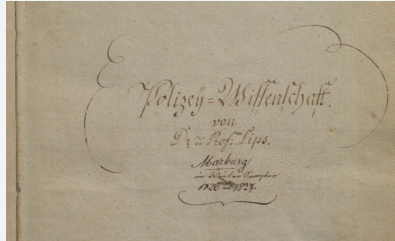 Polizey=Wissenschaft.
von
Dr. u. Prof: Lips.
Marburg
im Winter Semester
1826 u 1827.